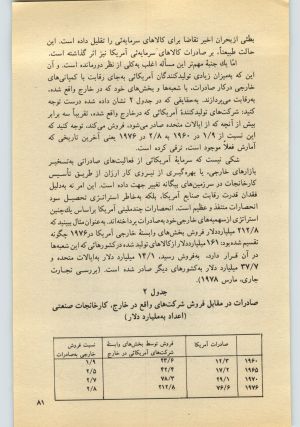 بطئی ازبحران اخیر تقاضا برای کالاهای سرمایه‌ئی را تقلیل داده است. این
حالت طبیعتاً، بر صادرات کالاهای سرمایه‌ئی آمریکا نیز اثر گذاشته است.
امّا یك جنبهٔ مهم‌تر این مسأله اغلب به‌کلی از نظر دورمانده است. و آن
این که به‌میزان زیادی تولیدکنندگان آمریکائی به‌جای رقابت با کمپانی‌های
خارجی درکار صادرات، با شعبه‌ها و بخش‌های خود که در خارج واقع شده،
به‌رقابت می‌پردازند. به‌حقایقی که در جدول ۲ نشان داده شده درست توجه
کنید: شرکت‌های تولیدکنندهٔ آمریکائی که درخارج واقع شده، تقریباً سه برابر
بیش از آنچه که از ایالات متحده صادر می‌شود، فروش می‌کند، توجه کنید که
این نسبت از ۱/۹ در ۱۹۶۰ به ۲/۸ در ۱۹۷۶ یعنی آخرین تاریخی که
آمارش فعلاً موجود است، ترقی کرده است.
شکی نیست که سرمایهٔ آمریکائی از فعالیت‌های صادراتی به‌تسخیر
بازارهای خارجی، با بهره‌گیری از نیروی کار ارزان از طریق تأسیس
کارخانجات در سرزمین‌های بیگانه تغییر جهت داده است. این امر نه به‌دلیل
فقدان قدرت رقابت صنایع آمریکا، بلکه به‌خاطر استراتژی تحصیل سود
انحصارات متنفذ و عظیم است. انحصارات چندملیتی آمریکا براساس یك‌چنین
استراتژی ازسهمیه‌های خارجی‌خود به‌صادرات پرداخته‌اند. به‌عنوان‌مثال ببینید که
۲۱۲/۸ میلیارددلار فروش بخش‌های وابستهٔ خارجی آمریکا در۱۹۷۶ چگونه
تقسیم شده بود: ۱۶۱ میلیارددلار ازکالاهای تولید شده، درکشورهائی که این شعبه‌ها
در آن قرار دارد، به‌فروش رسید، ۱۴/۱ میلیارد دلار به‌ایالات متحده و
۳۷/۷ میلیارد دلار به‌کشورهای دیگر صادر شده است. (بررسی تجارت
جاری، مارس ۱۹۷۸).
جدول ۲
صادرات در مقابل فروش شرکت‌های واقع در خارج، کارخانجات صنعتی
(اعداد به‌میلیارد دلار)
صادرات آمریکا فروش توسط بخش‌های وابستهٔ شرکت‌های آمریکائی در خارج نسبت فروش خارجی به‌صادرات
۱۹۶۰ ۱۲/۳ ۲۳/۶ ۱/۹
۱۹۶۵ ۱۷/۲ ۴۲/۴ ۲/۵
۱۹۷۰ ۲۹/۱ ۷۸/۳ ۲/۷
۱۹۷۶ ۷۶/۶ ۲۱۲/۸ ۲/۸
۸۱